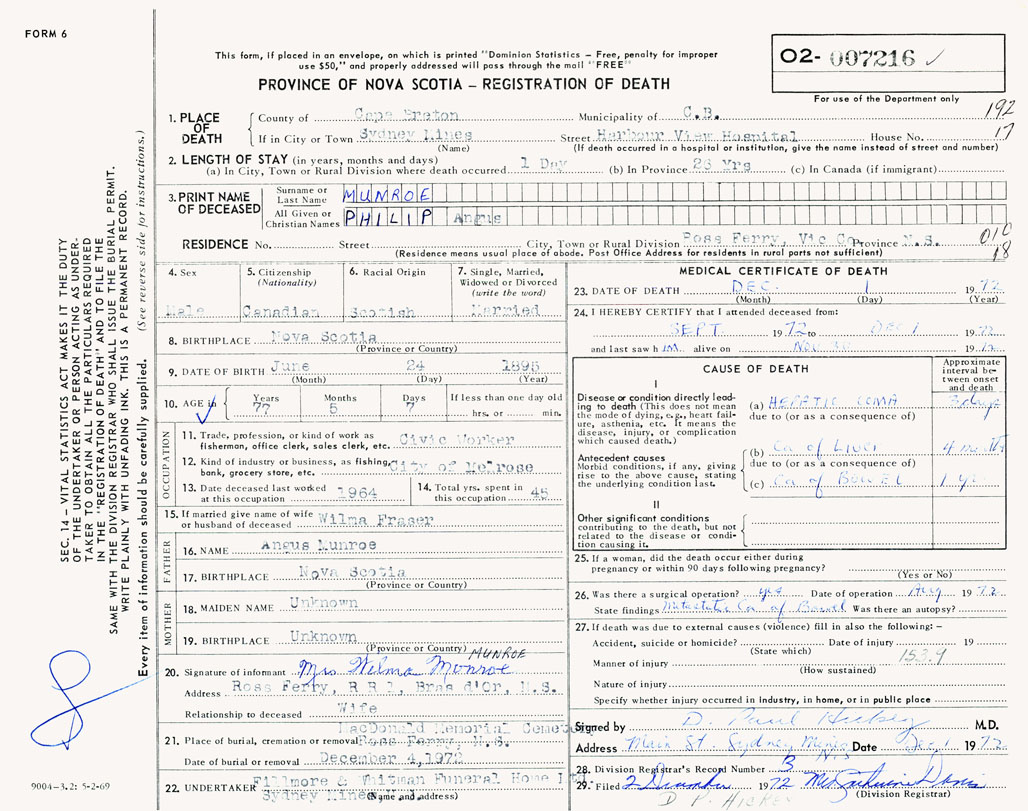 FORM 6
This form, if placed in an envelope, on which is printed "Dominion Statistics – Free, penalty for improper
use $50," and properly addressed will pass through the mail "FREE"
PROVINCE OF NOVA SCOTIA – REGISTRATION OF DEATH
O2- 007216 ✓
For use of the Department only
192
17
1. PLACE OF DEATH
County of Cape Breton Municipality of C.B.
If in City or Town Sydney Mines Street Harbour View Hospital House No.
(Name) (If death occurred in a hospital or institution, give the name instead of street and number)
2. LENGTH OF STAY (in years, months and days)
(a) In City, Town or Rural Division where death occurred 1 Day (b) In Province 26 Yrs (c) In Canada (if immigrant)
3. PRINT NAME OF DECEASED
Surname or Last Name MUNROE
All Given or Christian Names PHILIP Angus
RESIDENCE No. Street City, Town or Rural Division Ross Ferry, Vic Co Province N.S.
(Residence means usual place of abode. Post Office Address for residents in rural parts not sufficient)
010
18
4. Sex
Male
5. Citizenship
(Nationality)
Canadian
6. Racial Origin
Scotish
7. Single, Married,
Widowed or Divorced
(write the word)
Married
8. BIRTHPLACE Nova Scotia
(Province or Country)
9. DATE OF BIRTH June 24 1895
(Month) (Day) (Year)
10. AGE in Years Months Days If less than one day old
77 5 7 hrs. or min.
OCCUPATION
11. Trade, profession, or kind of work as
fisherman, office clerk, sales clerk, etc. Civic Worker
12. Kind of industry or business, as fishing,
bank, grocery store, etc. City of Melrose
13. Date deceased last worked
at this occupation 1964
14. Total yrs. spent in
this occupation 45
15. If married give name of wife
or husband of deceased Wilma Fraser
FATHER
16. NAME Angus Munroe
17. BIRTHPLACE Nova Scotia
(Province or Country)
MOTHER
18. MAIDEN NAME Unknown
19. BIRTHPLACE Unknown
(Province or Country) MUNROE
20. Signature of informant Mrs Wilma Munroe
Address Ross Ferry, R R 1, Bras d'Or, N.S.
Relationship to deceased Wife
MacDonald Memorial Cemetery
21. Place of burial, cremation or removal Ross Ferry, N.S.
Date of burial or removal December 4, 1972
22. UNDERTAKER Fillmore & Whitman Funeral Home Ltd.
Sydney Mines
(Name and address)
MEDICAL CERTIFICATE OF DEATH
23. DATE OF DEATH DEC. 1 1972
(Month) (Day) (Year)
24. I HEREBY CERTIFY that I attended deceased from:
SEPT 1972 to DEC 1 1972
and last saw him alive on Nov 30 1972
CAUSE OF DEATH
Approximate interval between onset and death
I
Disease or condition directly leading to death (This does not mean the mode of dying, e.g., heart failure, asthenia, etc. It means the disease, injury, or complication which caused death.)
(a) HEPATIC COMA 3 days
due to (or as a consequence of)
Antecedent causes
Morbid conditions, if any, giving rise to the above cause, stating the underlying condition last.
(b) Ca of Liver 4 months
due to (or as a consequence of)
(c) Ca of BOWEL 1 yr
II
Other significant conditions
contributing to the death, but not related to the disease or condition causing it.
25. If a woman, did the death occur either during
pregnancy or within 90 days following pregnancy?
(Yes or No)
26. Was there a surgical operation? yes Date of operation Aug 1972
State findings Metastatic Ca of Bowel Was there an autopsy?
27. If death was due to external causes (violence) fill in also the following: –
Accident, suicide or homicide? Date of injury 19
(State which)
153.9
Manner of injury
(How sustained)
Nature of injury
Specify whether injury occurred in industry, in home, or in public place
Signed by D. Paul Hickey M.D.
Address Main St. Sydney Mines Date Dec 1 1972
N.S.
28. Division Registrar's Record Number B
29. Filed 2 December 1972
(Division Registrar)
D P. HICKEY
SEC. 14 – VITAL STATISTICS ACT MAKES IT THE DUTY
OF THE UNDERTAKER OR PERSON ACTING AS UNDER-
TAKER TO OBTAIN ALL THE PARTICULARS REQUIRED
IN THE "REGISTRATION OF DEATH" AND TO FILE THE
SAME WITH THE DIVISION REGISTRAR WHO SHALL ISSUE THE BURIAL PERMIT.
WRITE PLAINLY WITH UNFADING INK. THIS IS A PERMANENT RECORD.
Every item of information should be carefully supplied. (See reverse side for instructions.)
9004-3.2: 5-2-69